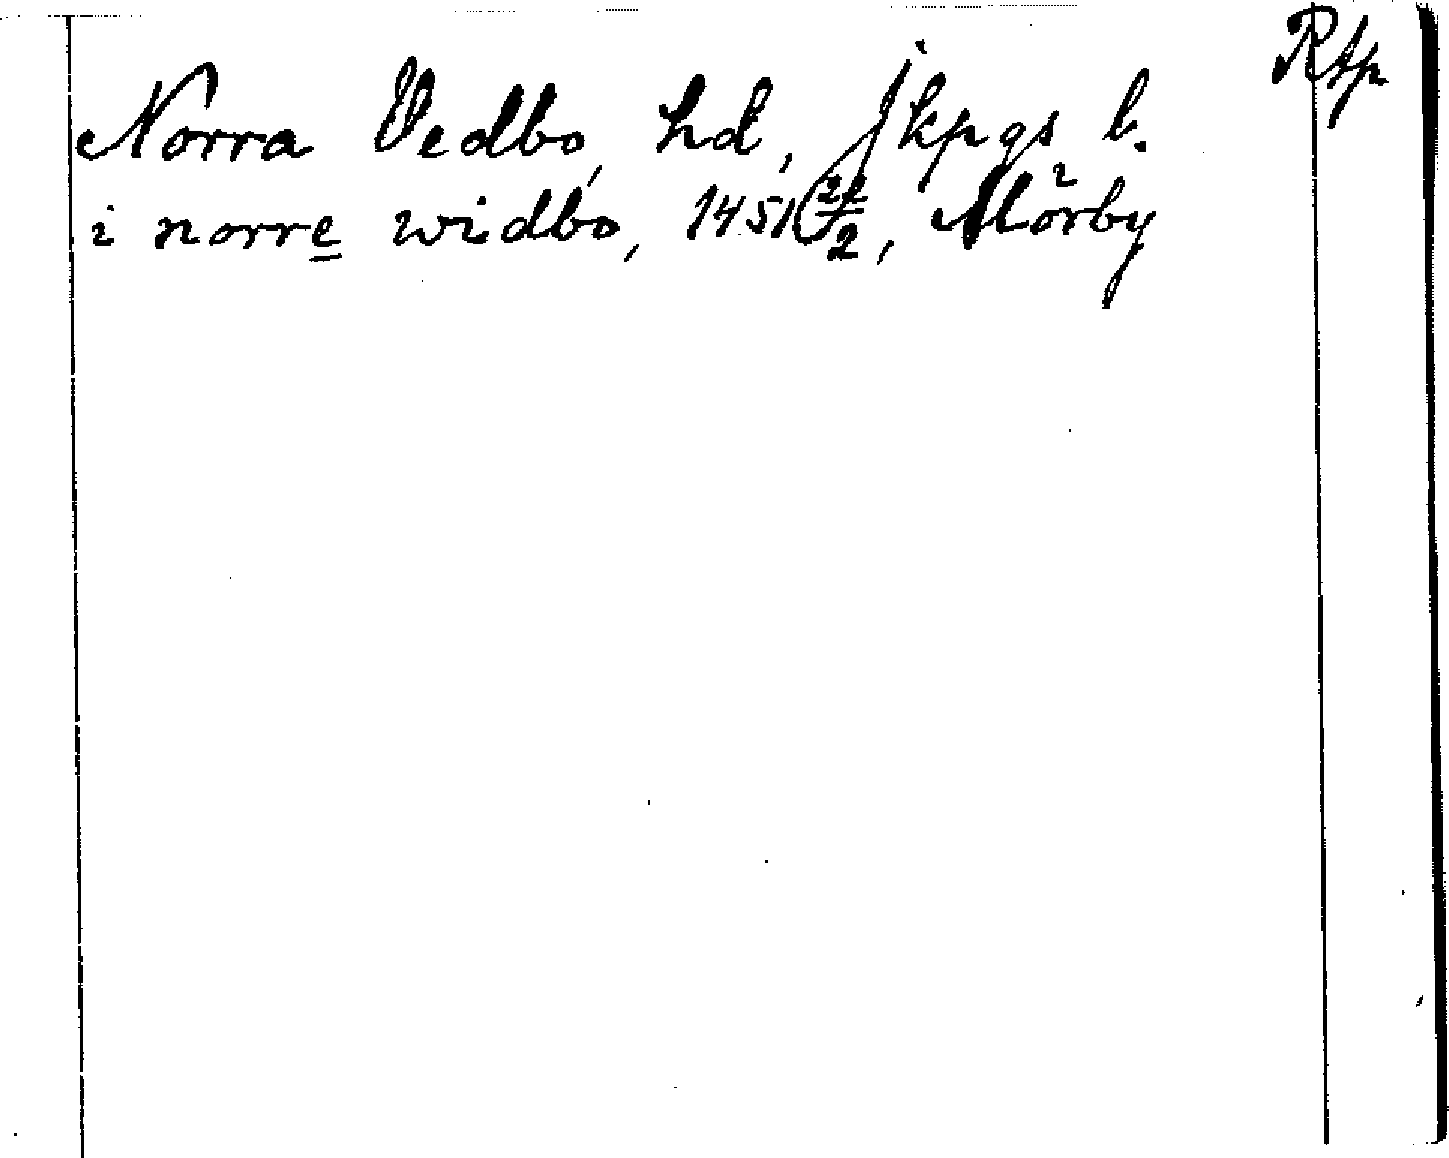 Rtp
Norra Vedbo, hd, Jkpgs l.
i norre widbo, 1451 22/2, Mörby